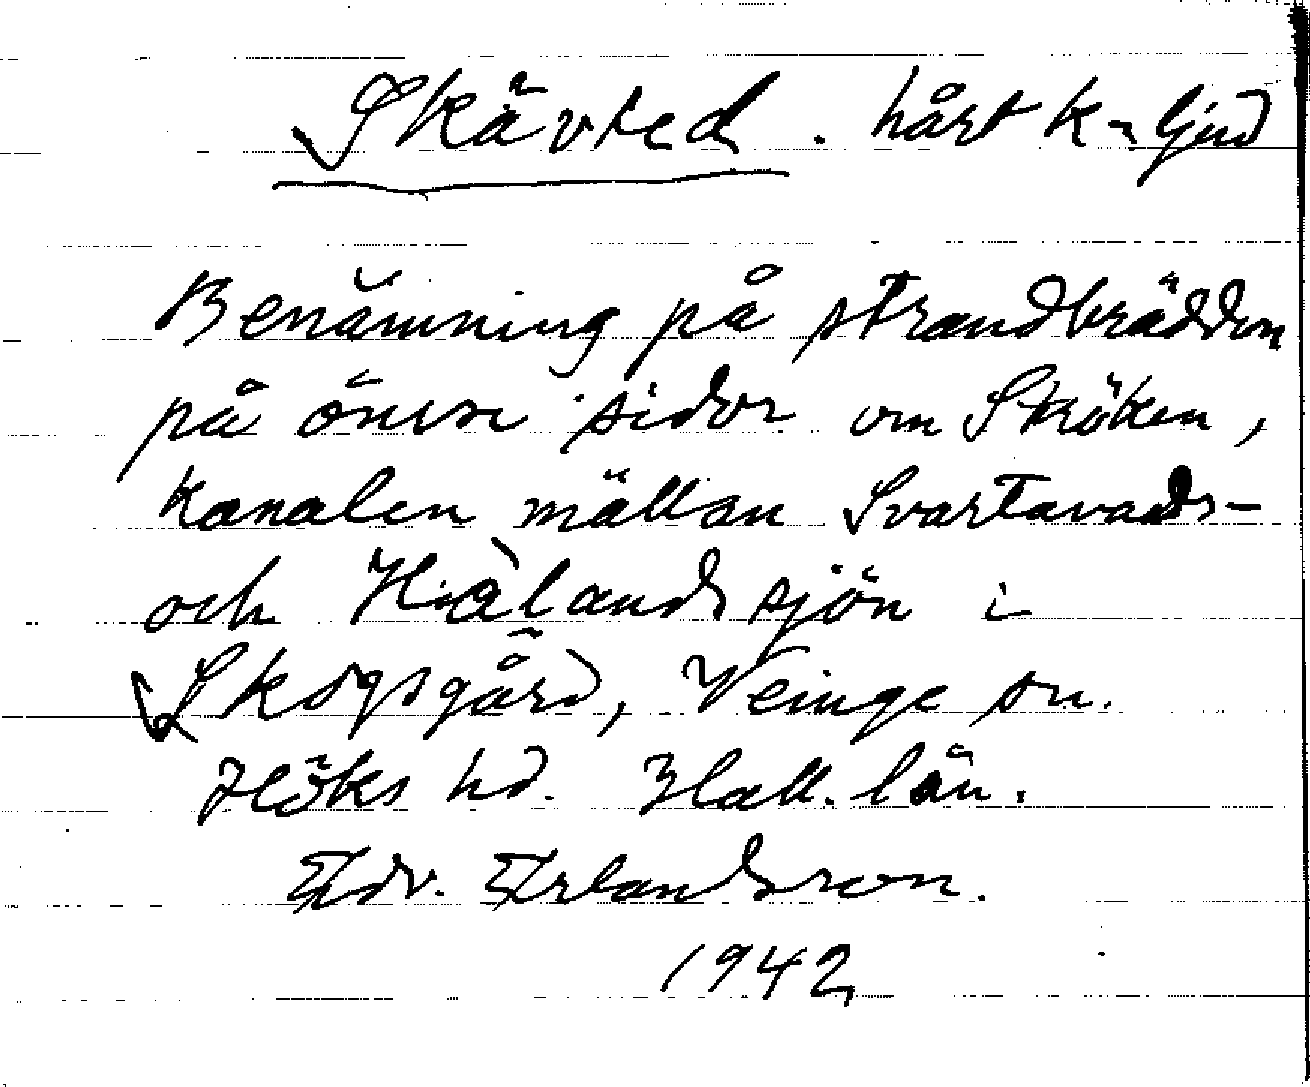 Skävled. hårt k-ljud
Benämning på strandbrädden
på ömse sidor om Ströken,
Kanalen mällan Svartavads-
och Hjälandssjön i
Skogsgård, Veinge sn.
Höks hd. Hall. län.
Edv. Erlandsson.
1942